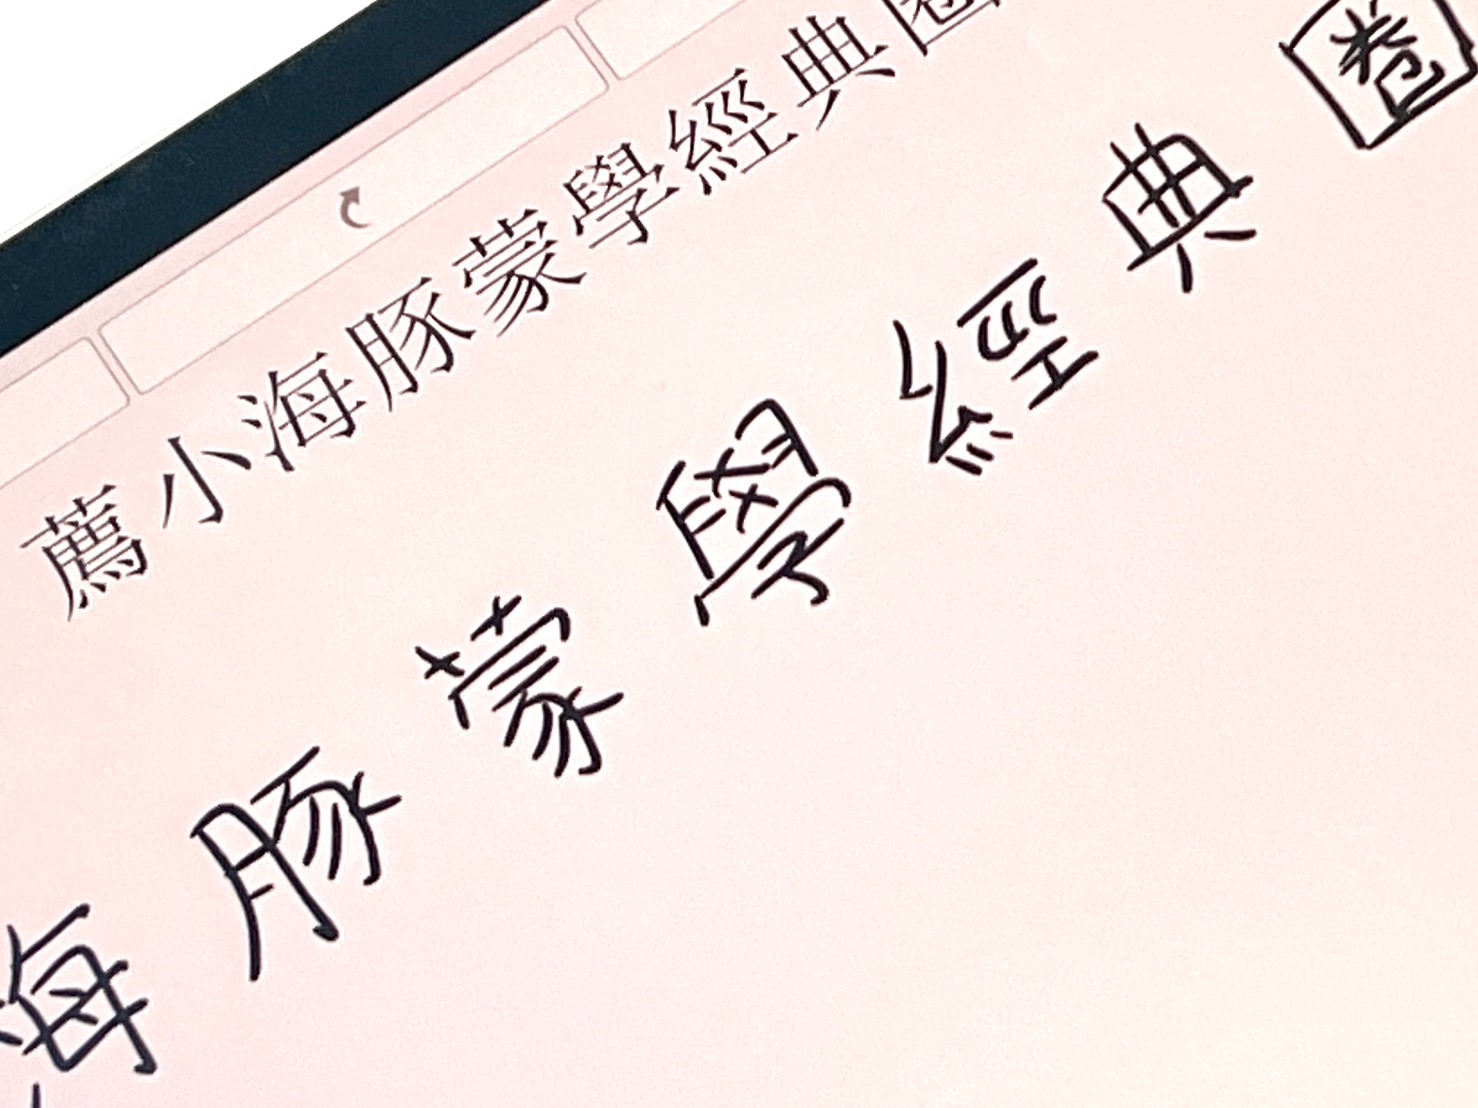 薦小海豚蒙學經典圈
海豚蒙學經典圈